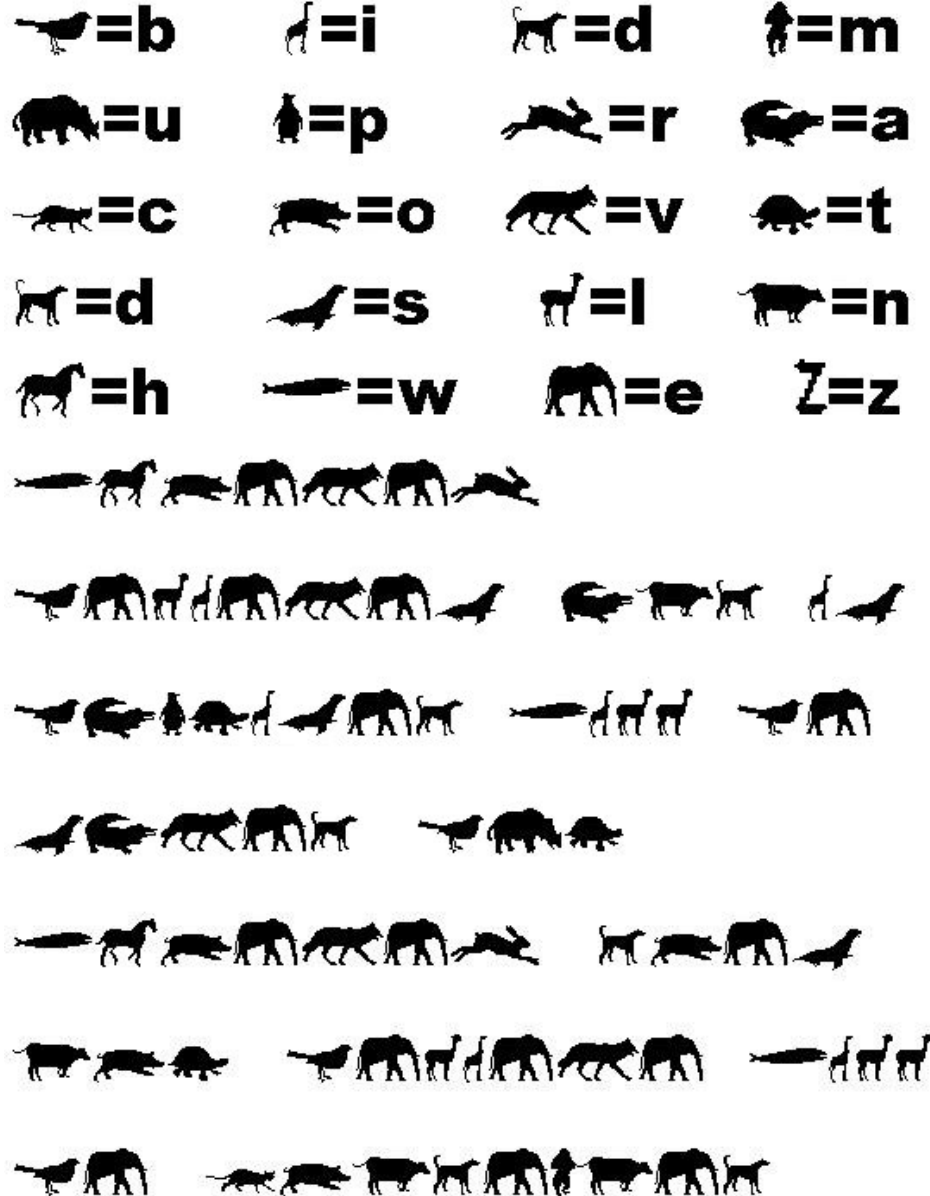 =b =i =d =m
=u =p =r =a
=c =o =v =t
=d =s =l =n
=h =w =e =z